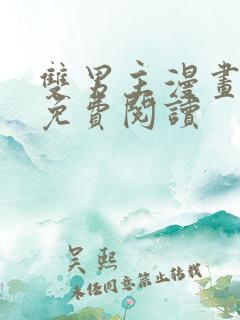 雙男主漫畫
免費閱讀
吴熙
未经同意禁止转载